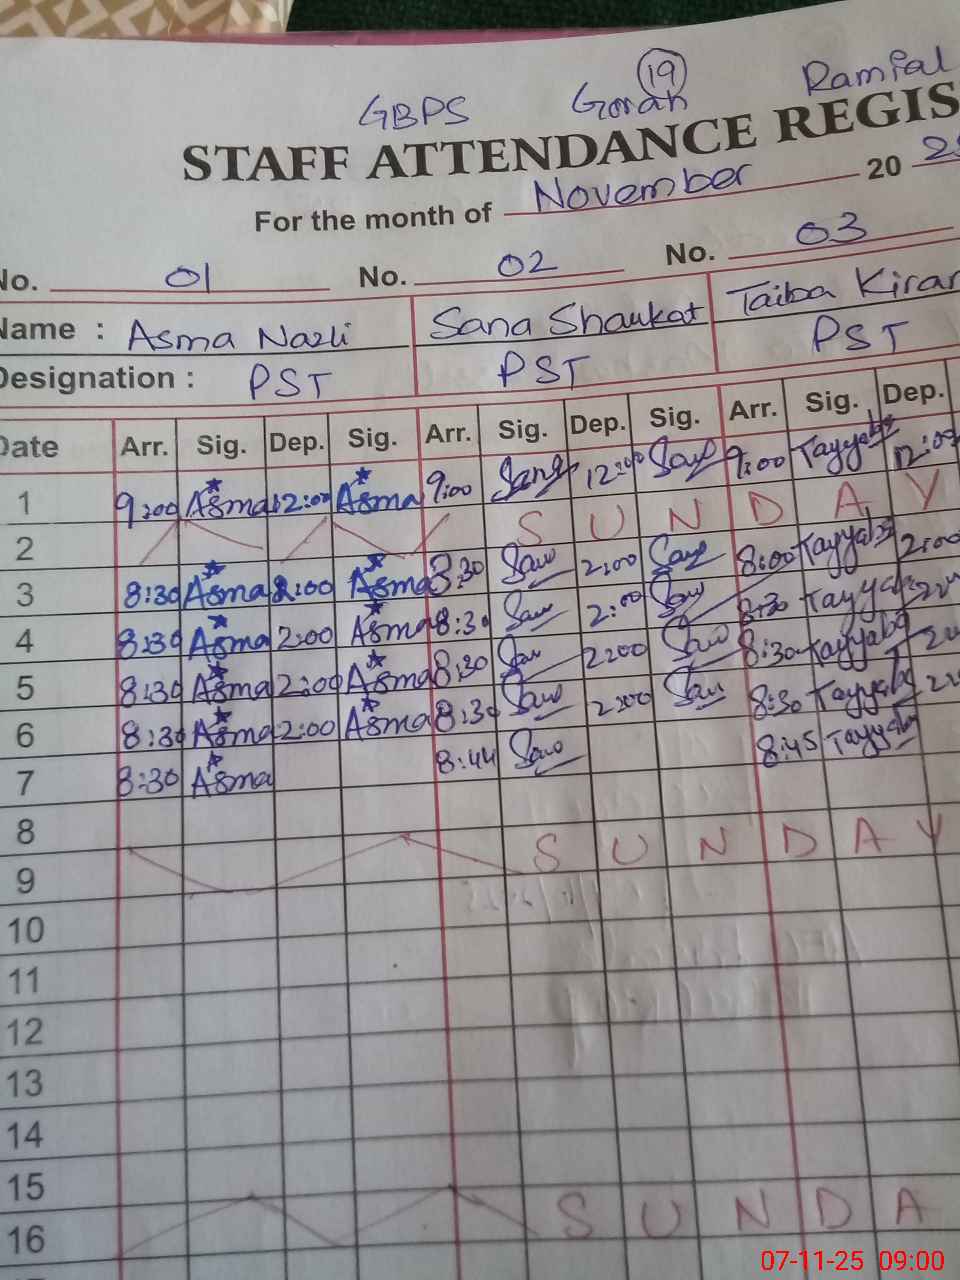 19
GBPS Gorah Rampal
STAFF ATTENDANCE REGIS
For the month of November 20 2
No. 01 No. 02 No. 03
Name : Asma Nazli Sana Shaukat Taiba Kiran
Designation : PST PST PST
Date Arr. Sig. Dep. Sig. Arr. Sig. Dep. Sig. Arr. Sig. Dep.
1 9:00 Asma 12:00 Asma 9:00 12:00 9:00 Tayyaba 12:00
2 S U N D A Y
3 8:30 Asma 2:00 Asma 8:30 2:00 8:00 Tayyaba 2:00
4 8:30 Asma 2:00 Asma 8:30 2:00 8:30 Tayyaba
5 8:30 Asma 2:00 Asma 8:30 2:00 8:30 Tayyaba
6 8:30 Asma 2:00 Asma 8:30 2:00 8:30 Tayyaba
7 8:30 Asma 8:44 8:45 Tayyaba
8
9 S U N D A Y
10
11
12
13
14
15
16 S U N D A
07-11-25 09:00